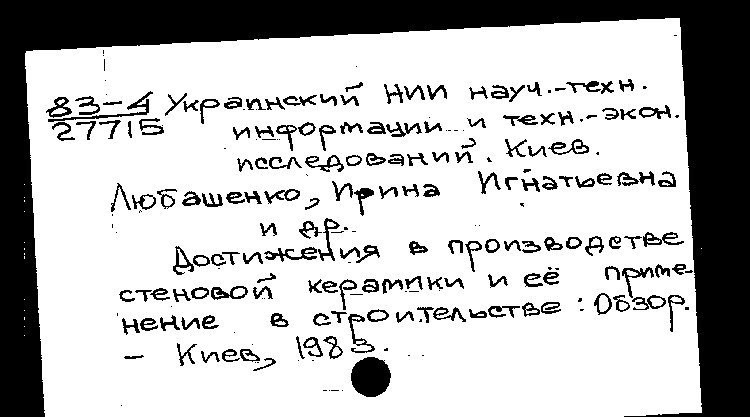 83-4 Украинский НИИ науч.-техн.
27715 информации и техн.-экон.
исследований. Киев.
Любашенко, Ирина Игнатьевна
и др.
Достижения в производстве
стеновой керамики и её приме
нение в строительстве: Обзор.
– Киев, 1983.